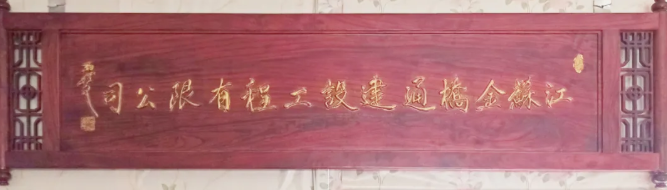 江蘇金橋通建設工程有限公司